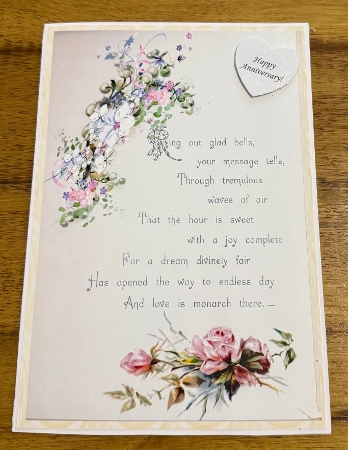 Happy
Anniversary!
Ring out glad bells,
your message tells,
Through tremulous
waves of air
That the hour is sweet
with a joy complete
For a dream divinely fair
Has opened the way to endless day
And love is monarch there. —